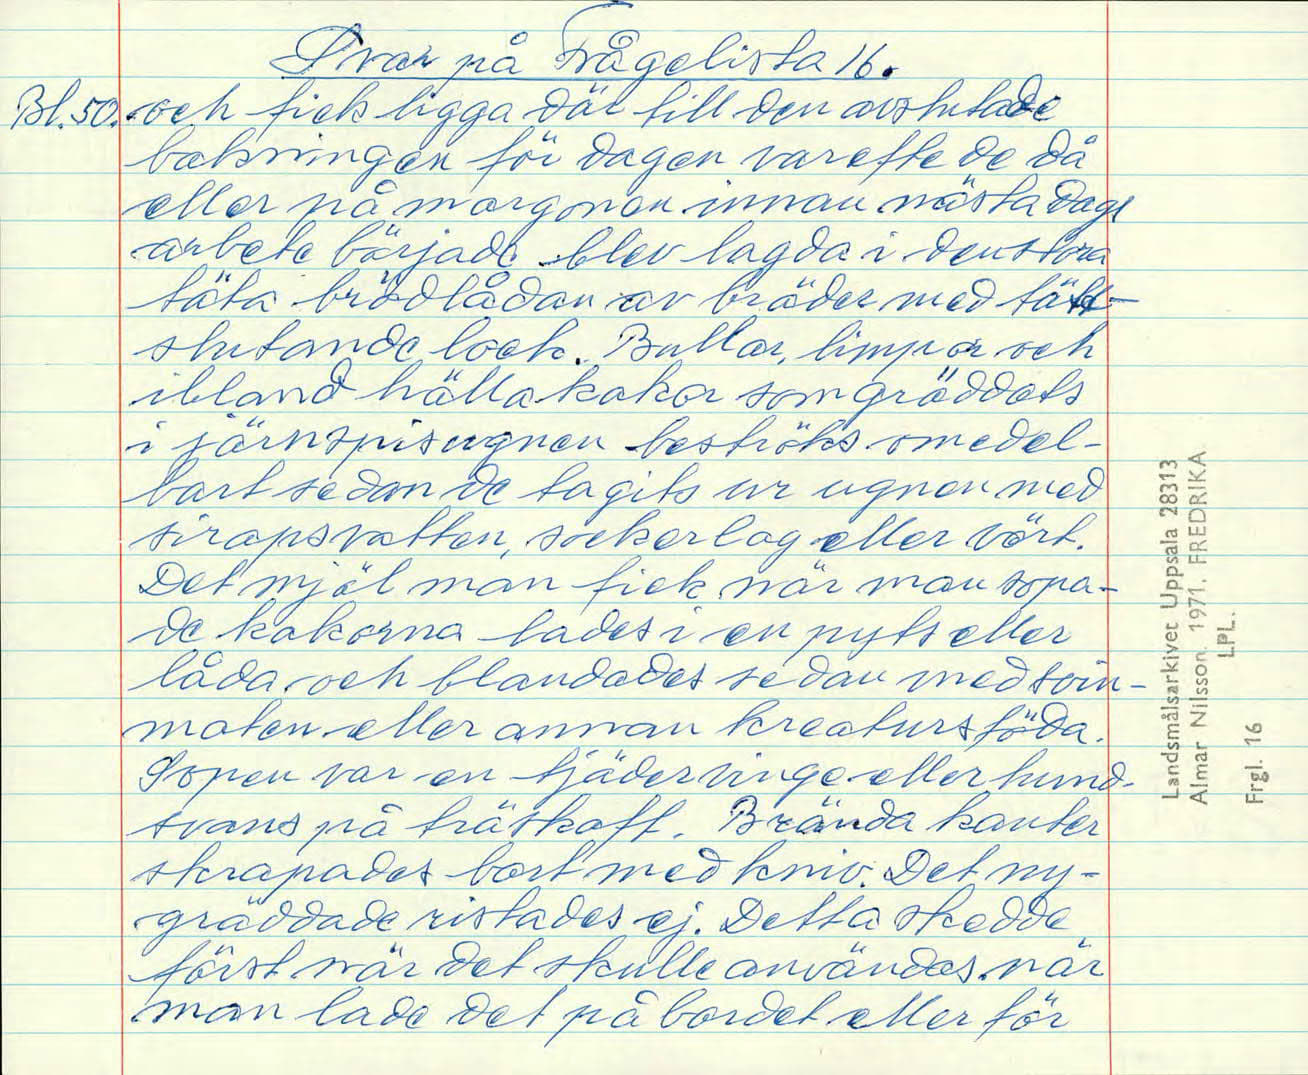 Svar på Frågelista 16.
Bl. 50. och fick ligga där till den avslutade
bakningen för dagen varefte de då
eller på morgonen innan nästa dags
arbete började blev lagda i den stora
täta brödlådan av bräder med tätt-
slutande lock. Bullar, limpor och
ibland hällakakor som gräddats
i järnspisugnen beströks omedel-
bart sedan de tagits ur ugnen med
sirapsvatten, sockerlag eller vört.
Det mjöl man fick när man sopa-
de kakorna lades i en pyts eller
låda och blandades sedan med svin-
maten eller annan kreatursföda.
Sopen var en tjädervinge eller hund-
svans på träskaft. Brända kanter
skrapades bort med kniv. Det ny-
gräddade ristades ej. Detta skedde
först när det skulle användas när
man lade det på bordet eller för
Landsmålsarkivet Uppsala 28313
Almar Nilsson. 1971. FREDRIKA
LPL.
Frgl. 16